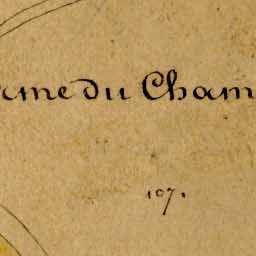 rme du Cham
107.